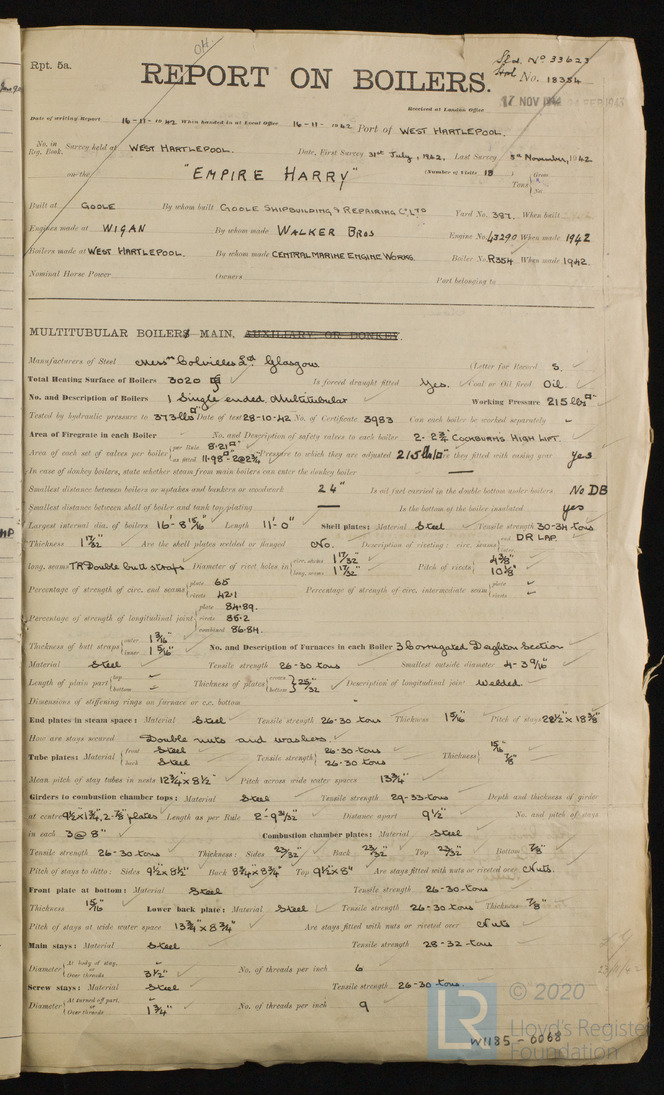 Rpt. 5a.
Sld. No 33623
REPORT ON BOILERS.
No. 18354
Received at London Office
17 NOV 194
Date of writing Report 16-11-1942 When handed in at Local Office 16-11-1942 Port of WEST HARTLEPOOL.
No. in Reg. Book. Survey held at WEST HARTLEPOOL. Date, First Survey 31st July, 1942. Last Survey 5th November, 1942
on the "EMPIRE HARRY" (Number of Visits 18 ) Tons Gross Net
Built at GOOLE By whom built GOOLE SHIPBUILDING & REPAIRING Co LTD Yard No. 387. When built
Engines made at WIGAN By whom made WALKER BROS Engine No. 43290 When made 1942
Boilers made at WEST HARTLEPOOL. By whom made CENTRAL MARINE ENGINE WORKS. Boiler No. R354 When made 1942.
Nominal Horse Power Owners Port belonging to
MULTITUBULAR BOILERS MAIN, AUXILIARY OR DONKEY.
Manufacturers of Steel Messrs Colvilles Ld Glasgow (Letter for Record S.
Total Heating Surface of Boilers 3020 Is forced draught fitted Yes. Coal or Oil fired Oil.
No. and Description of Boilers 1 Single ended Multitubular Working Pressure 215 lbs□"
Tested by hydraulic pressure to 373 lbs□" Date of test 28-10-42 No. of Certificate 3983 Can each boiler be worked separately -
Area of Firegrate in each Boiler No. and Description of safety valves to each boiler 2 - 2¾" COCKBURNS HIGH LIFT.
Area of each set of valves per boiler per Rule 8.21□" as fitted 11.98□" - 2@2¾" Pressure to which they are adjusted 215 lb/□" they fitted with easing gear yes
In case of donkey boilers, state whether steam from main boilers can enter the donkey boiler —
Smallest distance between boilers or uptakes and bunkers or woodwork 24" Is oil fuel carried in the double bottom under boilers No DB
Smallest distance between shell of boiler and tank top plating — Is the bottom of the boiler insulated yes
Largest internal dia. of boilers 16'-8 15/16" Length 11'-0" Shell plates: Material Steel Tensile strength 30-34 tons
Thickness 1 17/32" Are the shell plates welded or flanged No. Description of riveting: circ. seams end DR LAP.
long. seams TR Double butt straps Diameter of rivet holes in circ. seams 1 17/32" long. seams 1 17/32" Pitch of rivets 4 3/8" 10 1/8"
Percentage of strength of circ. end seams plate 65 rivets 42.1 Percentage of strength of circ. intermediate seam plate - rivets -
Percentage of strength of longitudinal joint plate 84.89. rivets 85.2 combined 86.84.
Thickness of butt straps outer 1 3/16" inner 1 5/16" No. and Description of Furnaces in each Boiler 3 Corrugated Deighton Section
Material Steel Tensile strength 26-30 tons Smallest outside diameter 4-3 9/16"
Length of plain part top - bottom - Thickness of plates crown bottom 25/32" Description of longitudinal joint Welded.
Dimensions of stiffening rings on furnace or c.c. bottom -
End plates in steam space: Material Steel Tensile strength 26-30 tons Thickness 15/16" Pitch of stays 22½" x 18 3/8"
How are stays secured Double nuts and washers.
Tube plates: Material front Steel back Steel Tensile strength 26-30 tons 26-30 tons Thickness 15/16" 7/8"
Mean pitch of stay tubes in nests 12¾" x 8½" Pitch across wide water spaces 13¾"
Girders to combustion chamber tops: Material Steel Tensile strength 29-33 tons Depth and thickness of girder
at centre 9½" x 1¾". 2-7/8" plates Length as per Rule 2'-9 31/32" Distance apart 9½" No. and pitch of stays
in each 3 @ 8" Combustion chamber plates: Material Steel
Tensile strength 26-30 tons Thickness: Sides 23/32" Back 23/32" Top 23/32" Bottom 7/8"
Pitch of stays to ditto: Sides 9½" x 8½" Back 8¾" x 8¾" Top 9½" x 8" Are stays fitted with nuts or riveted over Nuts.
Front plate at bottom: Material Steel Tensile strength 26-30 tons
Thickness 15/16" Lower back plate: Material Steel Tensile strength 26-30 tons Thickness 7/8"
Pitch of stays at wide water space 13¾" x 8¾" Are stays fitted with nuts or riveted over Nuts
Main stays: Material Steel Tensile strength 28-32 tons
Diameter At body of stay, or Over threads 3½" No. of threads per inch 6
Screw stays: Material Steel Tensile strength 26-30 tons.
Diameter At turned off part, or Over threads 1¾" No. of threads per inch 9
© 2020
LR Lloyd's Register Foundation
W1185-0068